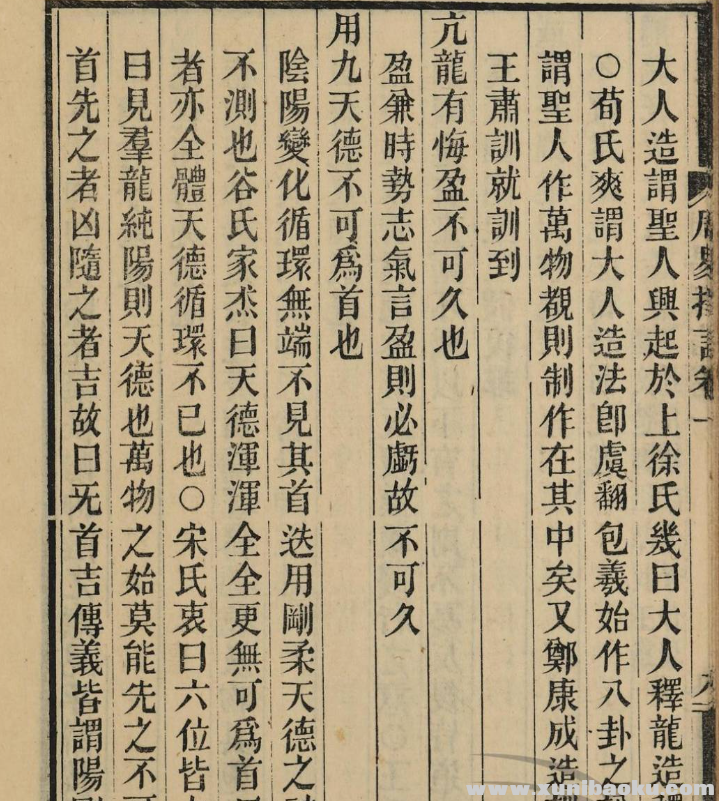 周易擇言卷一
大人造謂聖人興起於上徐氏幾曰大人釋龍造釋
○荀氏爽謂大人造法卽虞翻包羲始作八卦之
謂聖人作萬物覩則制作在其中矣又鄭康成造
王肅訓就訓到
亢龍有悔盈不可久也
盈兼時勢志氣言盈則必虧故不可久
用九天德不可爲首也
陰陽變化循環無端不見其首迭用剛柔天德之
不測也谷氏家杰曰天德渾渾全全更無可爲首
者亦全體天德循環不已也○宋氏衷曰六位皆
曰見羣龍純陽則天德也萬物之始莫能先之不
首先之者凶隨之者吉故曰旡首吉傳義皆謂陽
www.xunibaoku.com